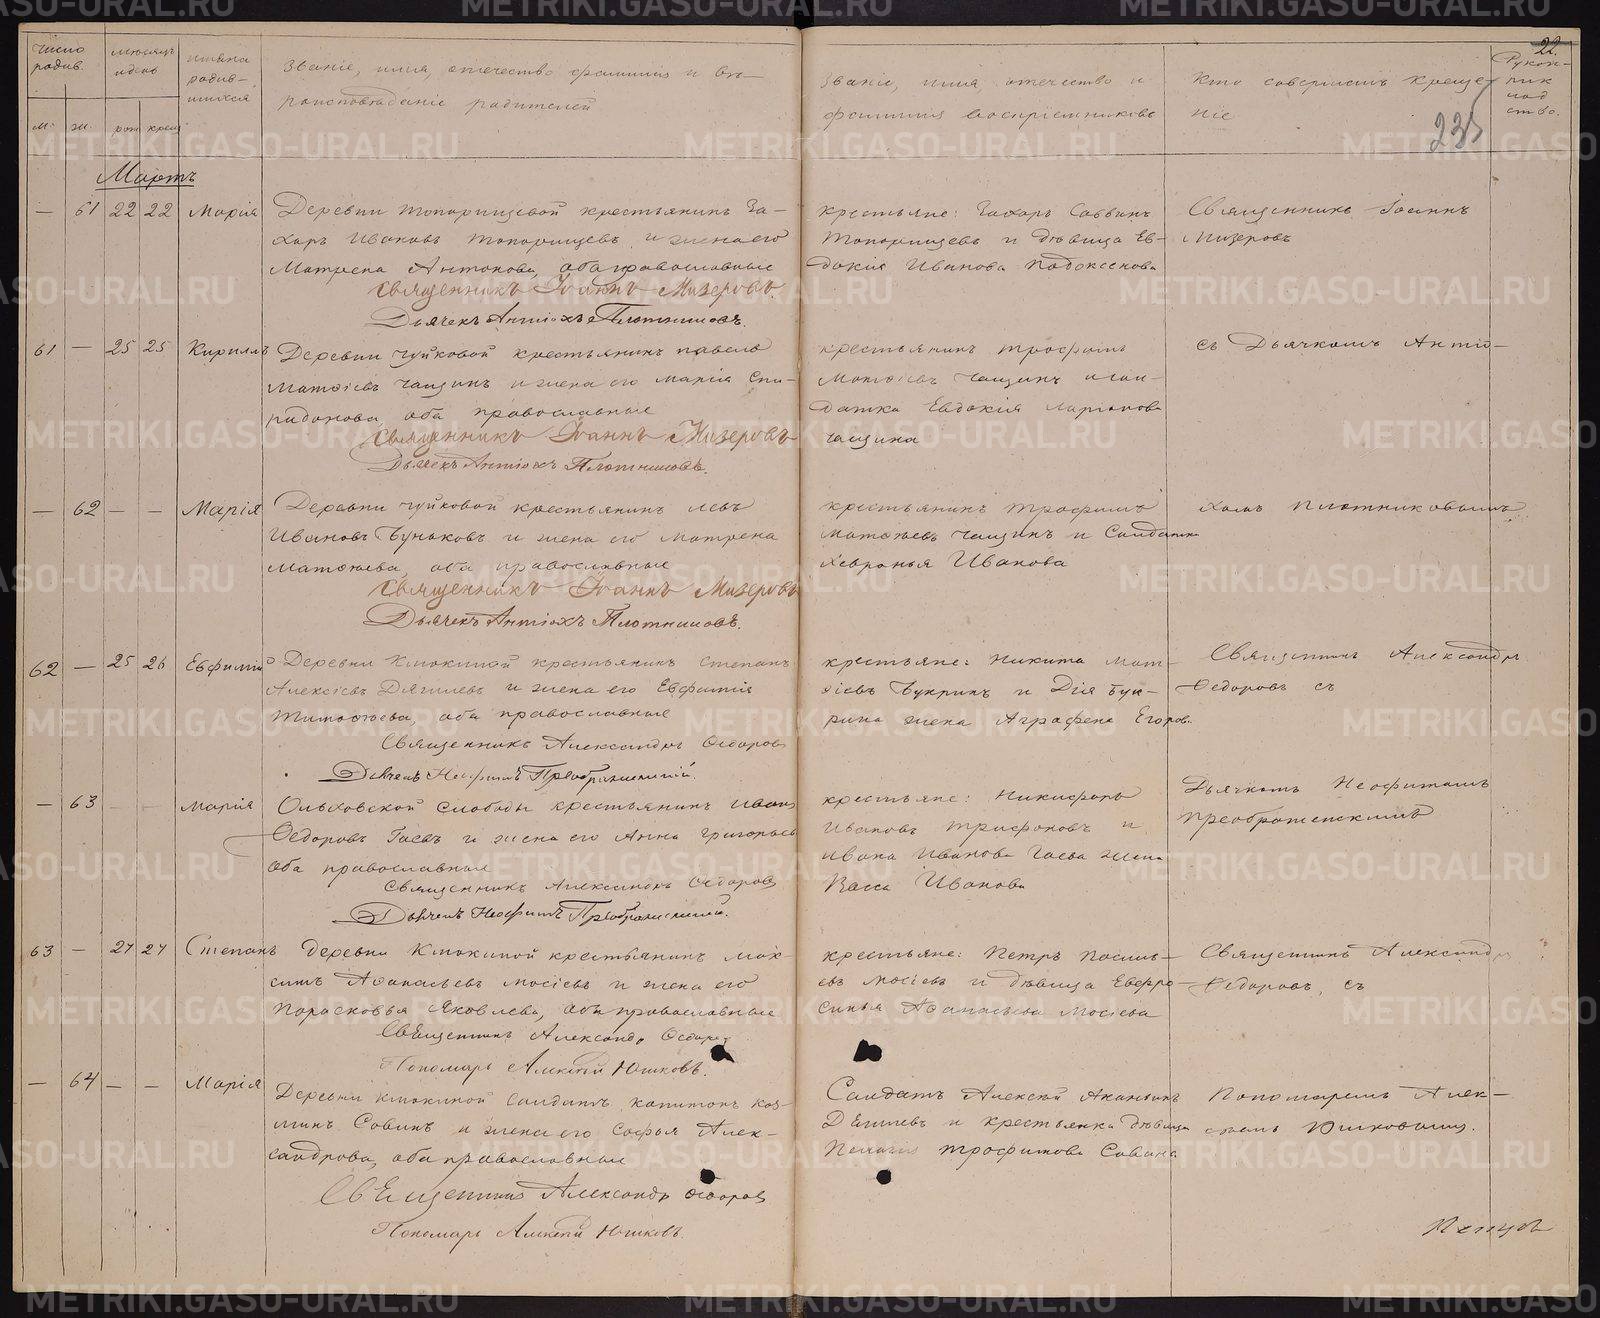 22.
235
Число родив.
мѣсяцъ и день
имяна родив-шихся
Званіе, имя, отечество фамилія и вѣ-
роисповѣданіе родителей
Званіе, имя, отечество и
фамилія воспріемниковъ
Кто совершалъ креще
ніе
Рукоприкладство.
м. ж. рож крещ
Мартъ
— 61 22 22 Марія
Деревни Топорищевой крестьянинъ За-
харъ Ивановъ Топорищевъ и жена его
Матрена Антонова, оба православные
Священникъ Іоаннъ Мизеровъ.
Дьячекъ Антіохъ Плотниковъ.
крестьяне: Захаръ Саввинъ
Топорищевъ и дѣвица Ев-
докія Иванова Подоксенова
Священникъ Іоаннъ
Мизеровъ
61 — 25 25 Кириллъ
Деревни Чуйковой крестьянинъ Павелъ
Матѳіевъ Чащинъ и жена его Марія Спи-
ридонова оба православные
Священникъ Іоаннъ Мизеровъ
Дьячекъ Антіохъ Плотниковъ.
крестьянинъ Трофимъ
Матѳіевъ Чащинъ и сол-
датка Евдокія Ларіонова
Чащина
съ Дьячкомъ Антіо-
— 62 — — Марія
Деревни Чуйковой крестьянинъ Левъ
Ивановъ Буньковъ и жена его Матрена
Матѳѣева, оба православные
Священникъ Іоаннъ Мизеровъ
Дьячекъ Антіохъ Плотниковъ.
крестьянинъ Трофимъ
Матѳѣевъ Чащинъ и Солдатка
Хевронья Иванова
хомъ Плотниковымъ.
62 — 25 26 Евфимій
Деревни Клюкиной крестьянинъ Степанъ
Алексіевъ Дягилевъ и жена его Евфимія
Тимофѣева, оба православные
Священникъ Александръ Ѳедоровъ
Дьячекъ Неофитъ Преображенскій.
крестьяне: Никита Мат-
ѳіевъ Букринъ и Дія Бук-
рина жена Аграфена Егоров.
Священникъ Александръ
Ѳедоровъ съ
— 63 — — Марія
Ольховской Слободы крестьянинъ Иванъ
Ѳедоровъ Гаевъ и жена его Анна Григорьев
оба православные
Священникъ Александръ Ѳедоровъ
Дьячекъ Неофитъ Преображенскій.
крестьяне: Никифоръ
Ивановъ Трифоновъ и
Ивана Иванова Гаева жена
Васса Иванова
Дьячкомъ Неофитомъ
Преображенскимъ
63 — 27 27 Степанъ
Деревни Клюкиной крестьянинъ Мак-
симъ Аѳанасьевъ Мосіевъ и жена его
Парасковья Яковлева, оба православные
Священникъ Александръ Ѳедоров
Пономарь Алексѣй Юшковъ.
крестьяне: Петръ Василь-
евъ Мосіевъ и дѣвица Евфро-
синья Аѳанасьева Мосіева
Священникъ Александръ
Ѳедоровъ, съ
— 64 — — Марія
Деревни Клюкиной Солдатъ Капитонъ Коз-
минъ Савинъ и жена его Софья Алек-
сандрова, оба православные
Священникъ Александръ Ѳедоров
Пономарь Алексѣй Юшковъ.
Солдатъ Алексѣй
Дягилевъ и крестьянка дѣвица
Пелагія Трофимова Савина
Пономаремъ Алек-
сѣемъ Юшковымъ.
METRIKI.GASO-URAL.RU